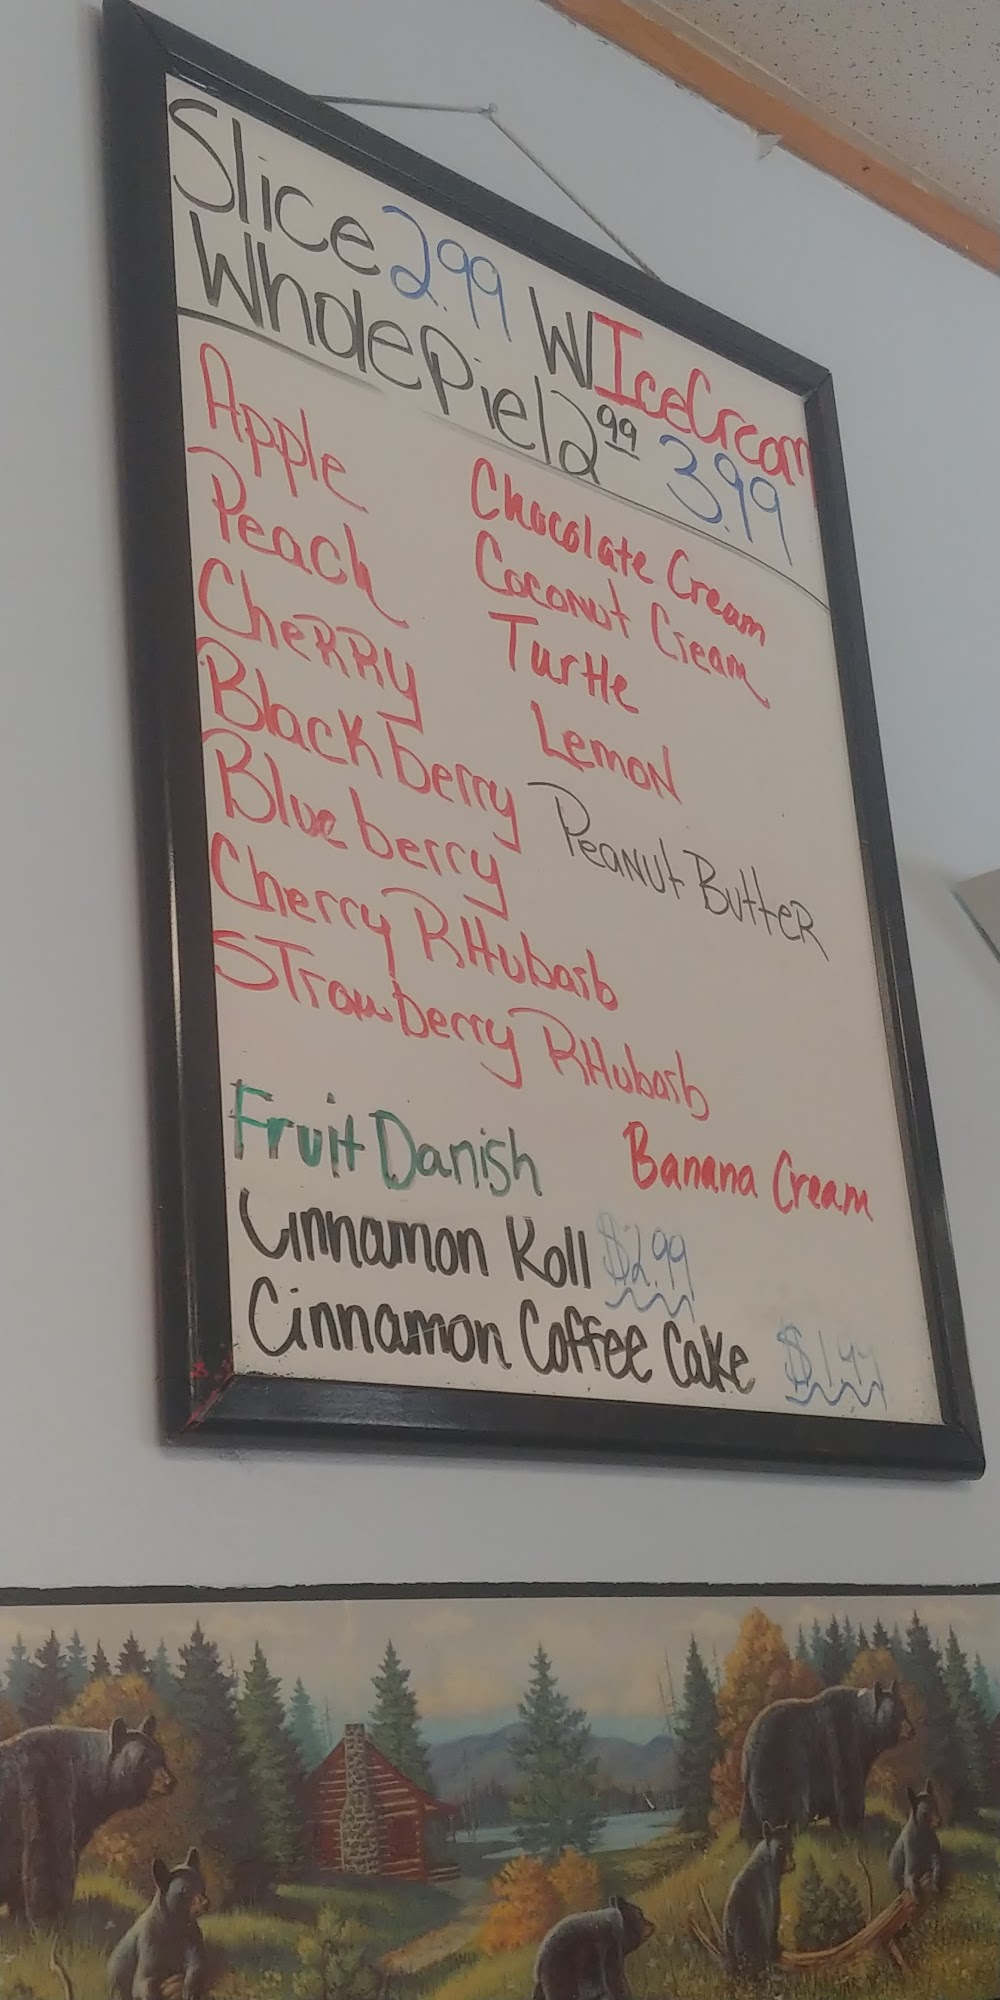 Slice 2.99 W/IceCream
WholePie 12.99 3.99
Apple
Peach
CheRRy
Blackberry
Blueberry
Cherry RHubarb
STrawberry RHubarb
Chocolate Cream
Coconut Cream
Turtle
Lemon
Peanut Butter
Fruit Danish
Banana Cream
Cinnamon Roll $2.99
Cinnamon Coffee Cake